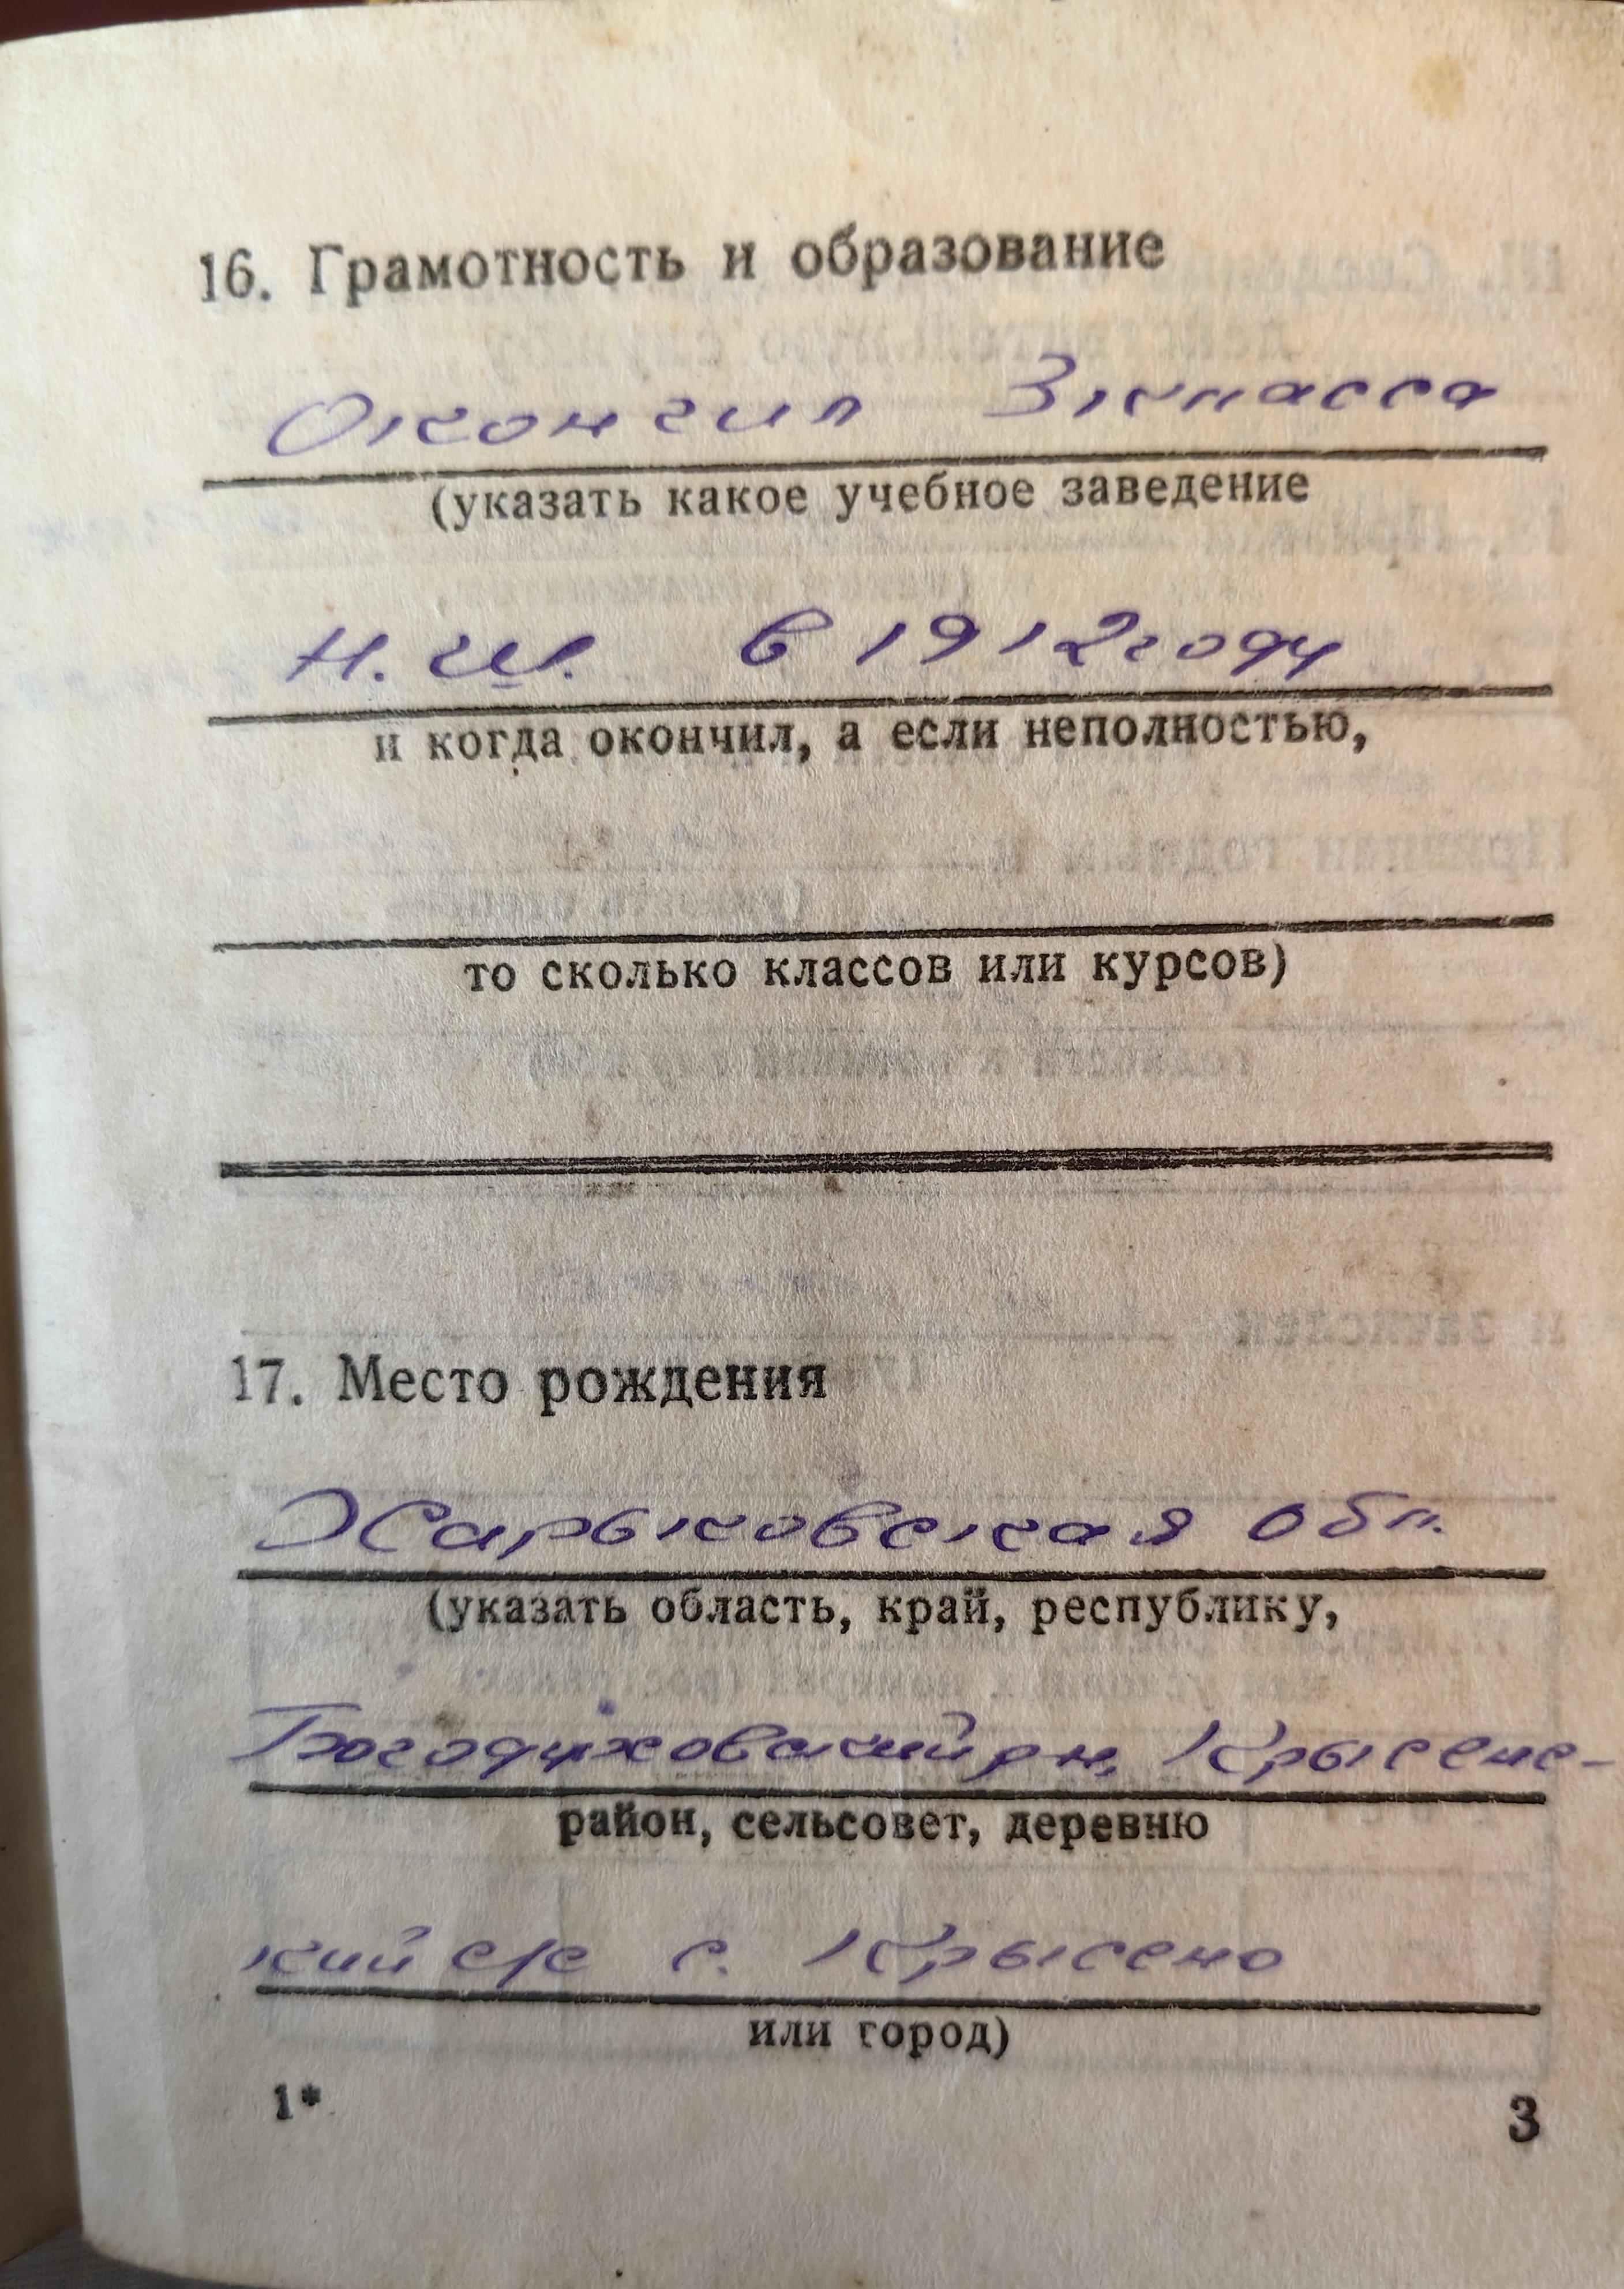 16. Грамотность и образование
Окончил 3 класса
(указать какое учебное заведение
Н.Ш. в 1912 году
и когда окончил, а если неполностью,
то сколько классов или курсов)
17. Место рождения
Харьковская обл.
(указать область, край, республику,
Богодуховский р-н, Крысенс-
район, сельсовет, деревню
кий с/с с. Крысено
или город)
1* 3